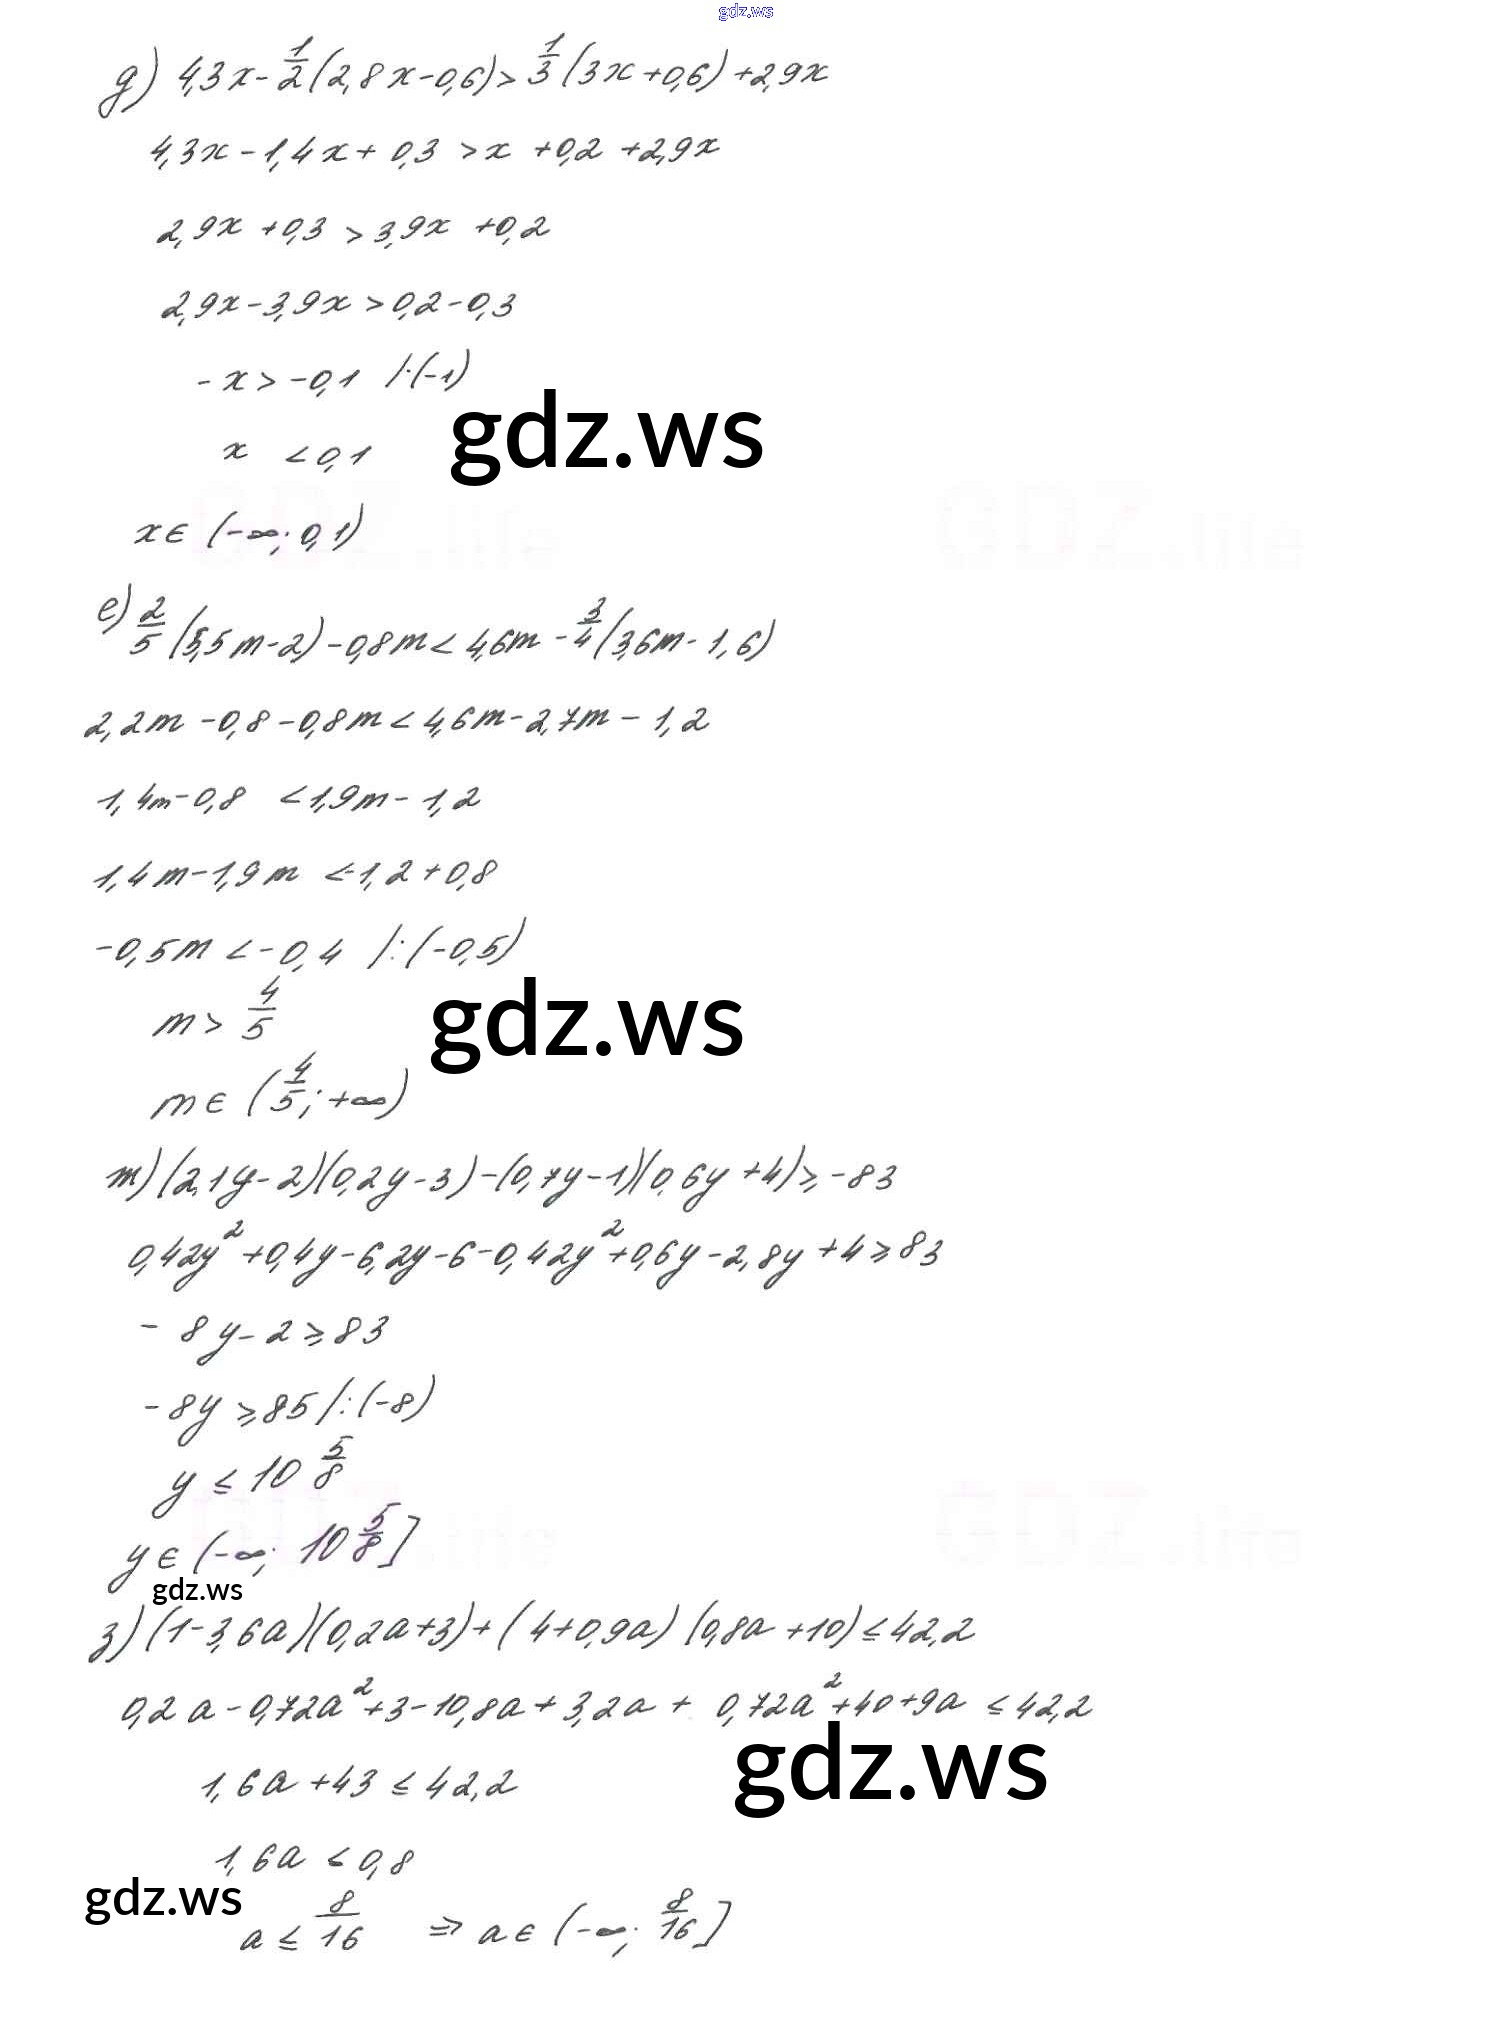 gdz.ws
д) 4,3x - 1/2 (2,8x - 0,6) > 1/3 (3x + 0,6) + 2,9x
4,3x - 1,4x + 0,3 > x + 0,2 + 2,9x
2,9x + 0,3 > 3,9x + 0,2
2,9x - 3,9x > 0,2 - 0,3
-x > -0,1 /·(-1)
gdz.ws
x < 0,1
x ∈ (-∞; 0,1)
GDZ.life GDZ.life
е) 2/5 (5,5m - 2) - 0,8m < 4,6m - 3/4 (3,6m - 1,6)
2,2m - 0,8 - 0,8m < 4,6m - 2,7m - 1,2
1,4m - 0,8 < 1,9m - 1,2
1,4m - 1,9m < -1,2 + 0,8
-0,5m < -0,4 /:(-0,5)
m > 4/5
gdz.ws
m ∈ (4/5; +∞)
m) (2,1y - 2)(0,2y - 3) - (0,7y - 1)(0,6y + 4) ≥ -83
0,42y² + 0,4y - 6,2y - 6 - 0,42y² + 0,6y - 2,8y + 4 ≥ 83
- 8y - 2 ≥ 83
- 8y ≥ 85 /:(-8)
y ≤ 10 5/8
GDZ.life GDZ.life
y ∈ (-∞; 10 5/8]
gdz.ws
з) (1 - 3,6a)(0,2a + 3) + (4 + 0,9a) (0,8a + 10) ≤ 42,2
0,2a - 0,72a² + 3 - 10,8a + 3,2a + 0,72a² + 40 + 9a ≤ 42,2
gdz.ws
1,6a + 43 ≤ 42,2
1,6a ≤ 0,8
gdz.ws
a ≤ 8/16 ⇒ a ∈ (-∞; 8/16]